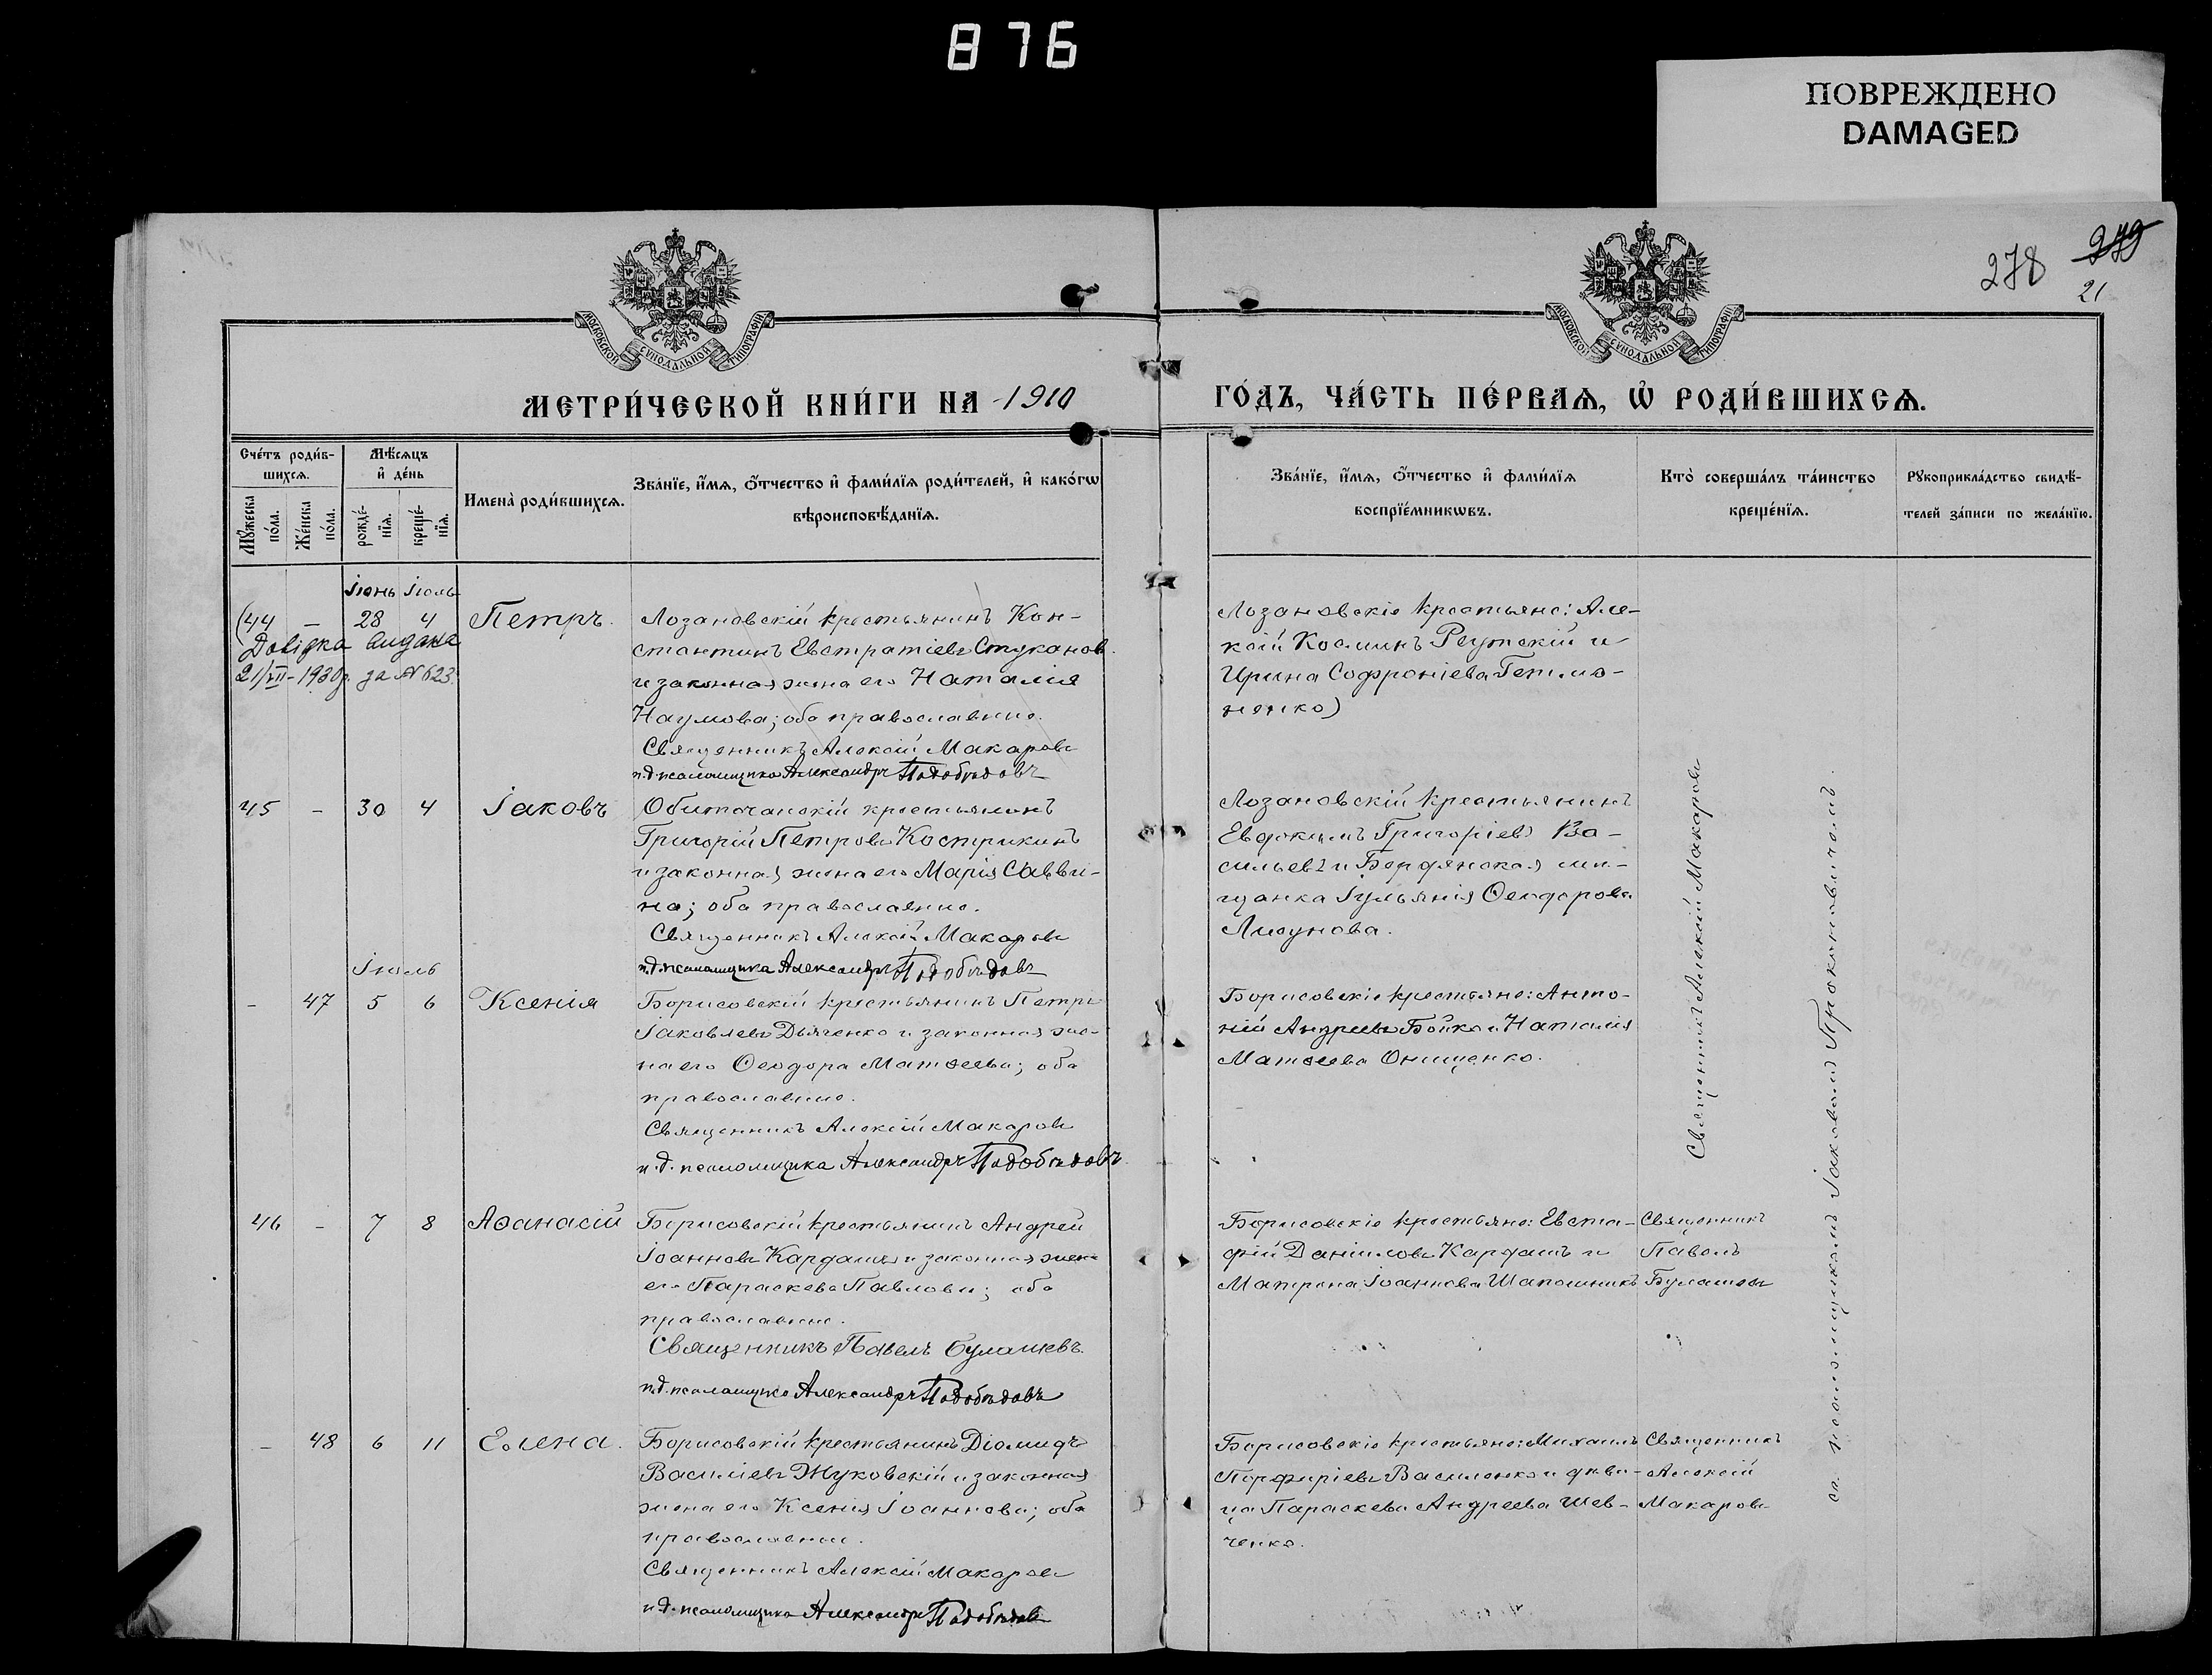 876
ПОВРЕЖДЕНО
DAMAGED
278 279
21
МОСКОВСКОЙ СѴНОДАЛЬНОЙ ТИПОГРАФІИ
МОСКОВСКОЙ СѴНОДАЛЬНОЙ ТИПОГРАФІИ
МЕТРИ́ЧЕСКОЙ КНИ́ГИ НА 1910
ГО́ДЪ, ЧА́СТЬ ПЕ́РВАѦ, Ѡ҆ РОДИ́ВШИХСѦ.
Сче́тъ роди́в-
шихсѧ.
Мꙋ́жеска по́ла.
Же́нска по́ла.
Мѣ́сѧцъ
и҆ де́нь
рожде́-нїѧ.
креще́-нїѧ.
Имена̀ роди́вшихсѧ.
Зва́нїе, и҆́мѧ, ѻ҆́тчество и҆ фами́лїѧ роди́телей, и҆ како́гѡ
вѣроисповѣ́данїѧ.
Зва́нїе, и҆́мѧ, ѻ҆́тчество и҆ фами́лїѧ
воспрїе́мникѡвъ.
Кто̀ соверша́лъ та́инство
креще́нїѧ.
Рꙋкоприкла́дство свидѣ́-
телей за́писи по жела́нїю.
Іюнь Іюль
(44 – 28 4 Петръ.
Довідка видана
21/VII–1930р. за № 623.
Лозановскій крестьянинъ Кон-
стантинъ Евстратіевъ Стуканов
и законная жена его Наталія
Наумова; оба православные.
Священникъ Алексій Макаровъ
и.д. псаломщика Александръ Подобѣдовъ
Лозановскіе крестьяне: Але-
ксій Косминъ Реутскій и
Ирина Софроніева Гетма-
ненко)
45 – 30 4 Іаковъ
Обиточанскій крестьянинъ
Григорій Петровъ Кострикинъ
и законная жена его Марія Савви-
на; оба православные.
Священникъ Алексій Макаровъ
и.д. псаломщика Александръ Подобѣдовъ
Лозановскій крестьянинъ
Евдокимъ Григоріевъ Ва-
сильевъ и Бердянская мѣ-
щанка Іуліанія Ѳеодорова
Лисунова.
Іюль
– 47 5 6 Ксенія
Борисовскій крестьянинъ Петръ
Іаковлевъ Дьяченко и законная же-
на его Ѳеодора Матѳеева; оба
православные.
Священникъ Алексій Макаровъ
и.д. псаломщика Александръ Подобѣдовъ
Борисовскіе крестьяне: Анто-
ній Андреевъ Бойко и Наталія
Матѳеева Онищенко.
Священникъ Алексій Макаровъ
съ псаломщикомъ Іаковомъ Прокоповичемъ.
46 – 7 8 Аѳанасій
Борисовскій крестьянинъ Андрей
Іоанновъ Кардашъ и законная жена
его Параскева Павлова; оба
православные.
Священникъ Павелъ Булашевъ.
и.д. псаломщика Александръ Подобѣдовъ
Борисовскіе крестьяне: Евста-
фій Даніиловъ Кардашъ и
Матрона Іоаннова Шапошникъ
Священникъ
Павелъ
Булашевъ
– 48 6 11 Елена.
Борисовскій крестьянинъ Діомидъ
Василіевъ Жуковскій и законная
жена его Ксенія Іоаннова; оба
православные.
Священникъ Алексій Макаровъ
и.д. псаломщика Александръ Подобѣдовъ
Борисовскіе крестьяне: Михаилъ
Порфиріевъ Василенко и дѣви-
ца Параскева Андреева Шев-
ченко.
Священникъ
Алексій
Макаровъ